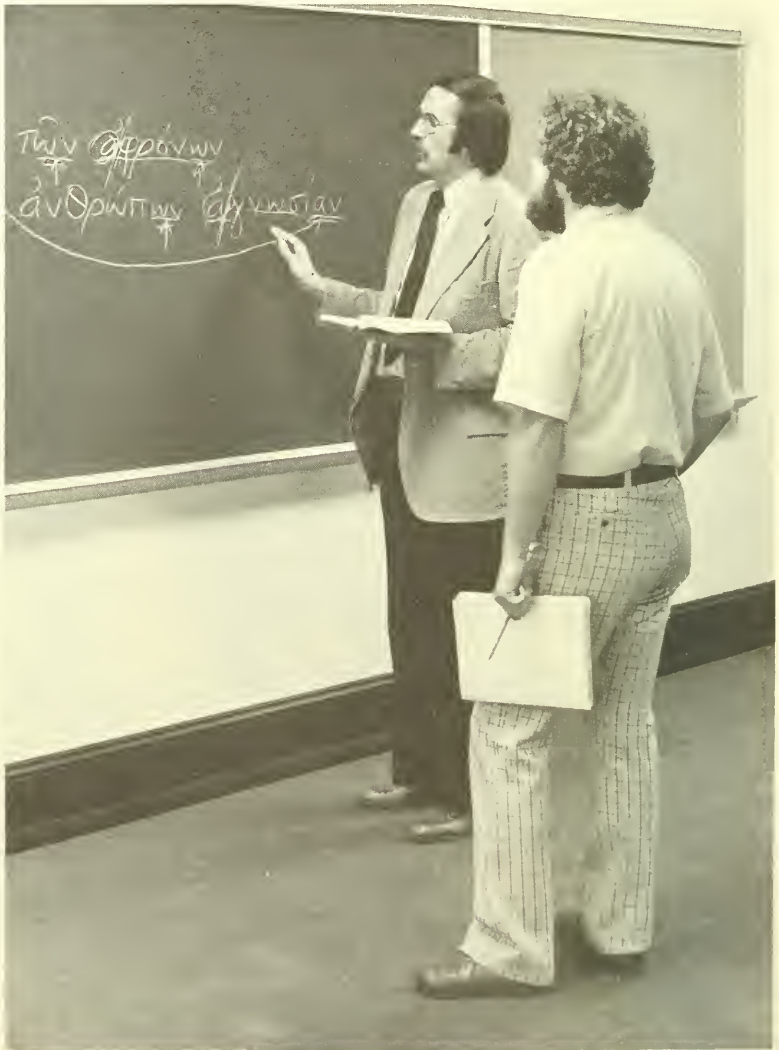 τῶν ἀφρόνων
ἀνθρώπων ἀγνωσίαν